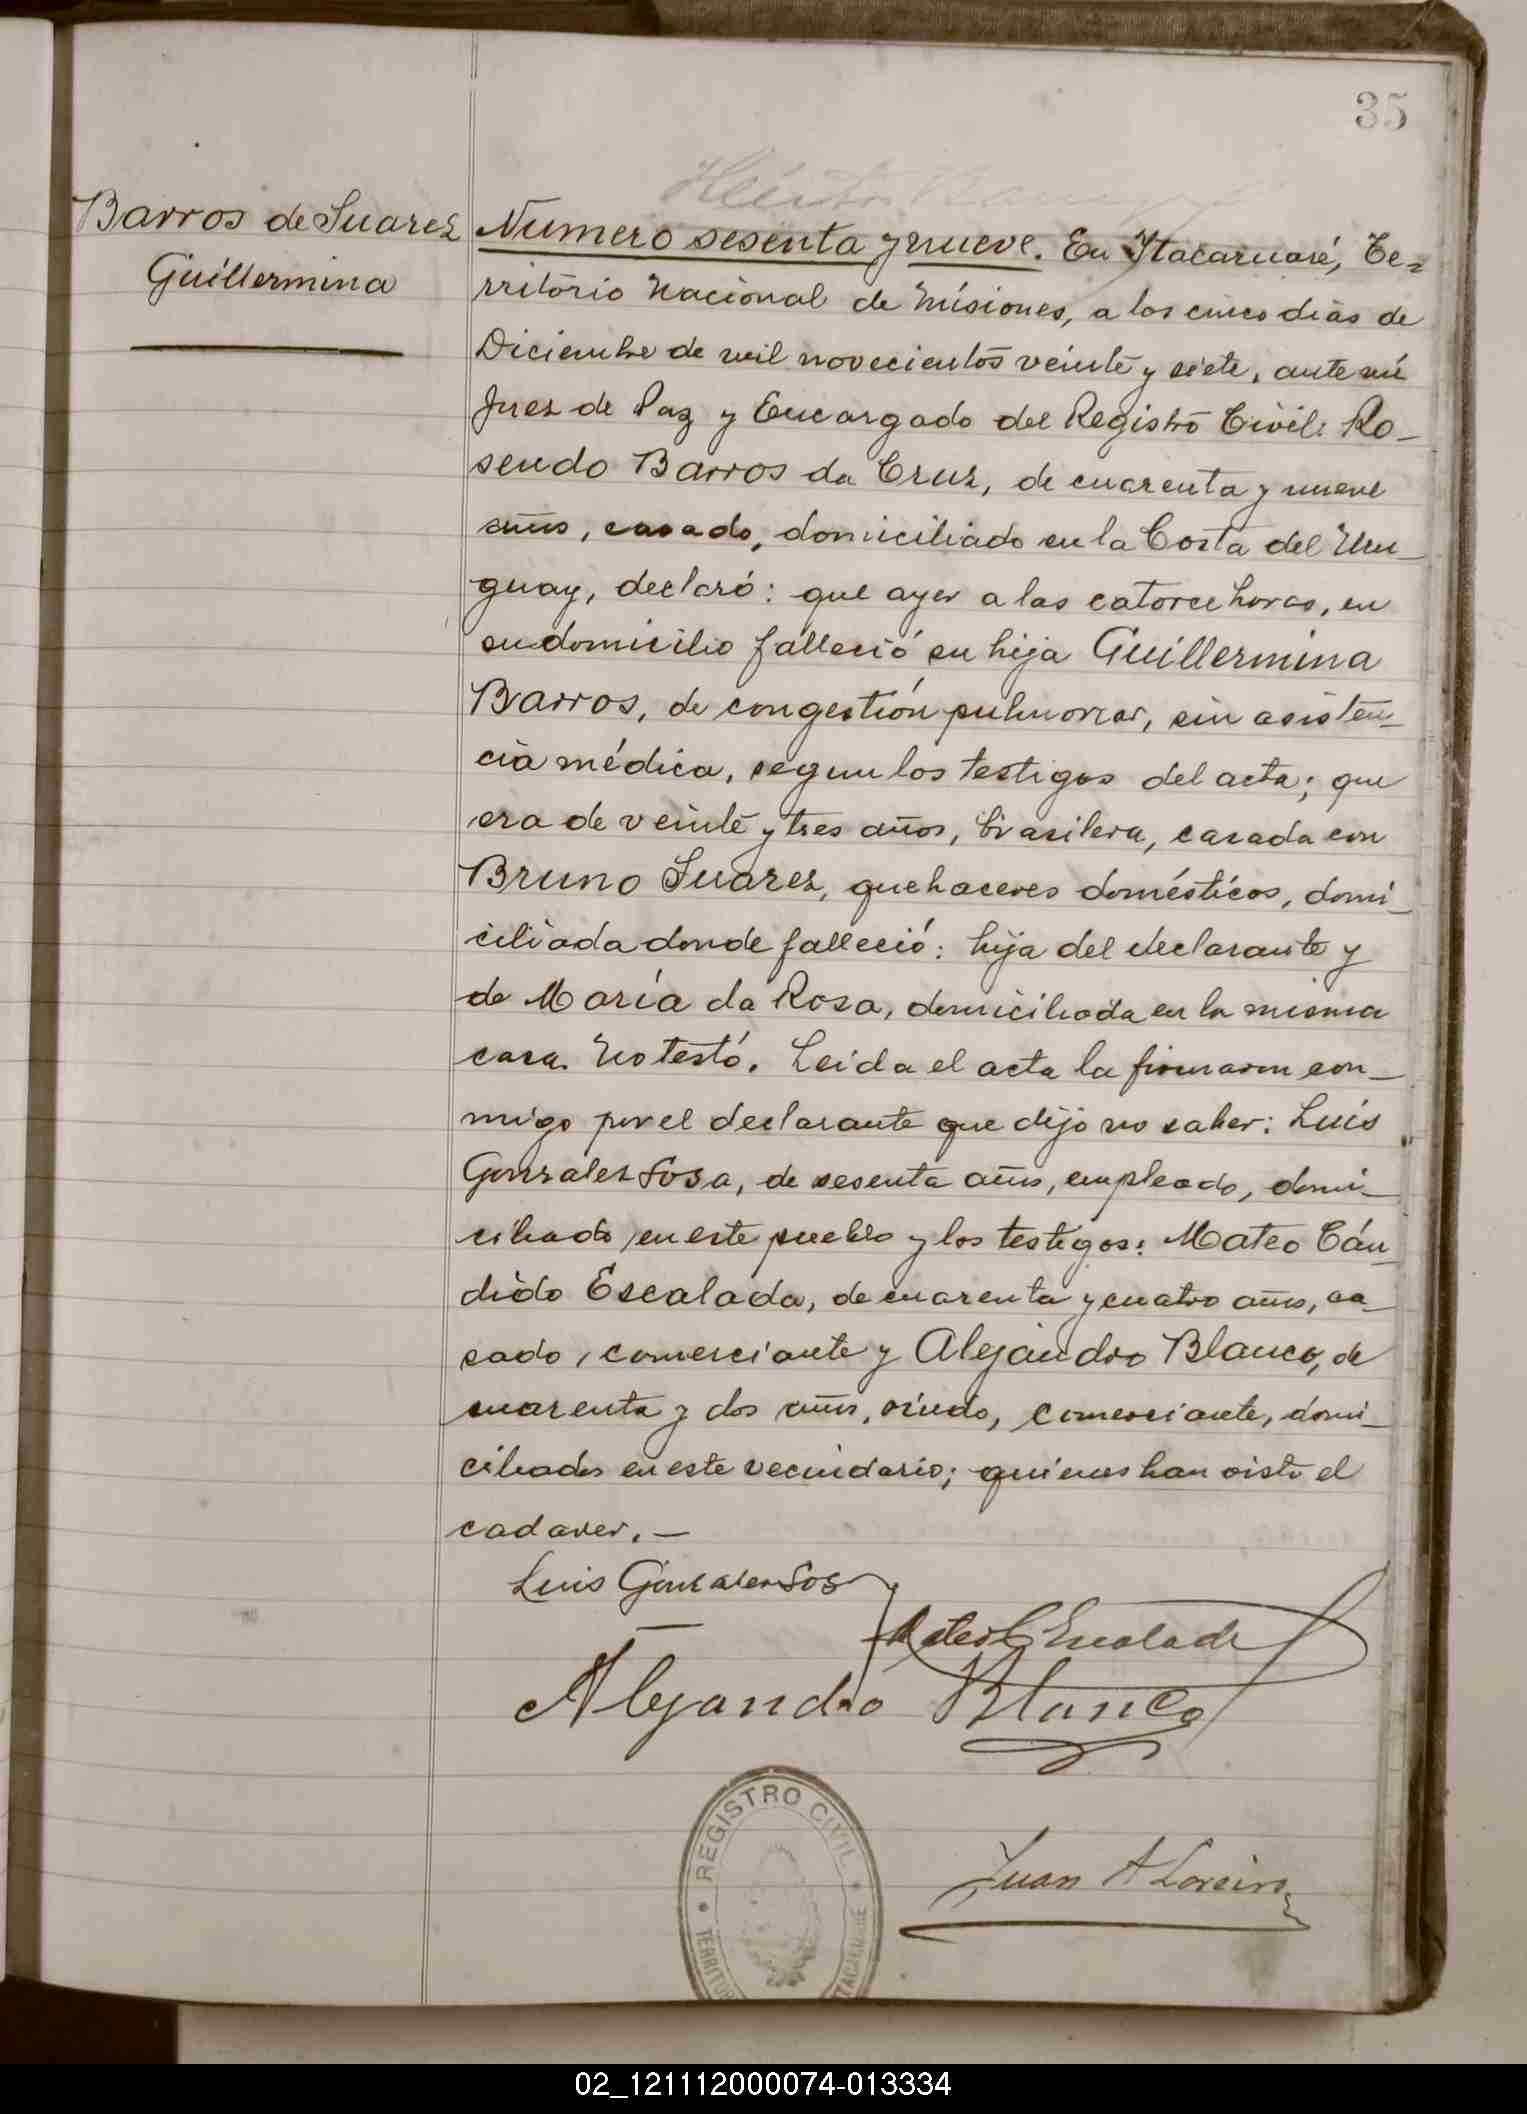 35
Barros de Suarez
Guillermina
Numero sesenta y nueve. En Itacaruaré, Te-
rritorio Nacional de Misiones, a los cinco dias de
Diciembre de mil novecientos veinte y siete, ante mi
Juez de Paz y Encargado del Registro Civil: Ro-
sendo Barros da Cruz, de cuarenta y nueve
años, casado, domiciliado en la Costa del Uru-
guay, declaró: que ayer a las catorce horas, en
su domicilio falleció su hija Guillermina
Barros, de congestión pulmonar, sin asisten-
cia médica, segun los testigos del acta; que
era de veinte y tres años, brasilera, casada con
Bruno Suarez, quehaceres domésticos, domi-
ciliada donde falleció: hija del declarante y
de María da Rosa, domiciliada en la misma
casa. No testó. Leida el acta la firmaron con-
migo por el declarante que dijo no saber: Luis
Gonzalez Sosa, de sesenta años, empleado, domi-
ciliado en este pueblo y los testigos: Mateo Cán-
dido Escalada, de cuarenta y cuatro años, ca-
sado, comerciante y Alejandro Blanco, de
cuarenta y dos años, viudo, comerciante, domi-
ciliados en este vecindario; quienes han visto el
cadaver. —
Luis Gonzalez Sosa
Mateo C Escalada
Alejandro Blanco
REGISTRO CIVIL
TERRITOR
ITACARUARE
Juan A Loreiro
02_121112000074-013334